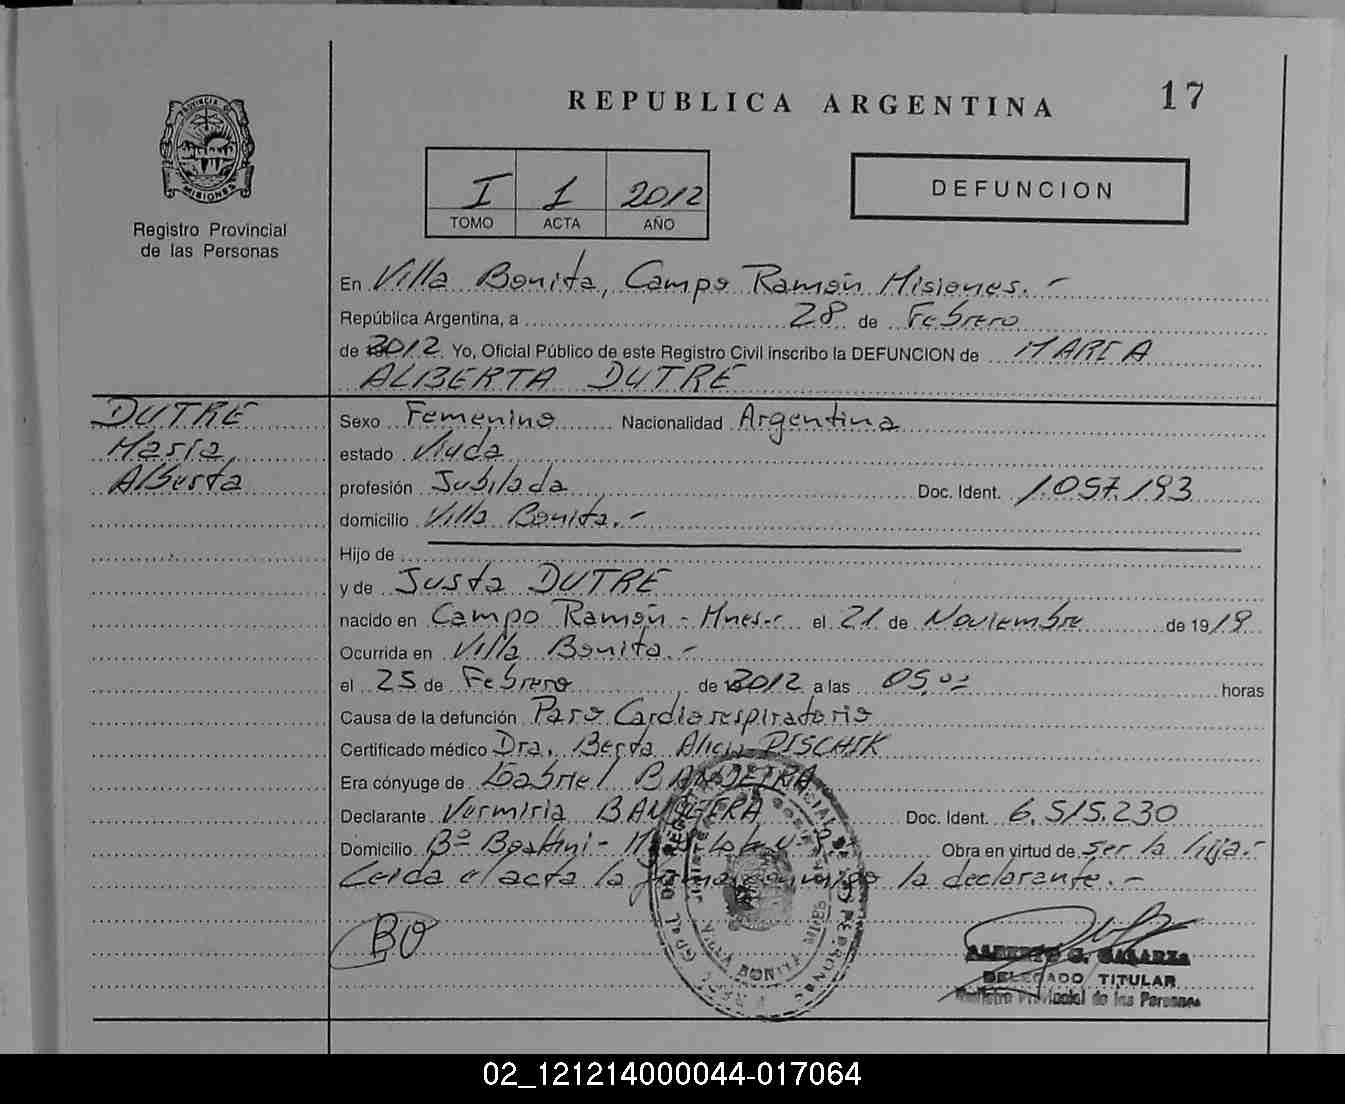 REPUBLICA ARGENTINA
17
PROVINCIA DE
MISIONES
Registro Provincial
de las Personas
I 1 2012
TOMO ACTA AÑO
DEFUNCION
En Villa Bonita, Campo Ramón Misiones.-
República Argentina, a 28 de Febrero
de 2012 Yo, Oficial Público de este Registro Civil inscribo la DEFUNCION de MARIA
ALBERTA DUTRE
DUTRE
María
Alberta
Sexo Femenino Nacionalidad Argentina
estado Viuda
profesión Jubilada Doc. Ident. 1.057.193
domicilio Villa Bonita.-
Hijo de
y de Justa DUTRE
nacido en Campo Ramón - Mnes.- el 21 de Noviembre de 1919
Ocurrida en Villa Bonita.-
el 25 de Febrero de 2012 a las 05,00 horas
Causa de la defunción Paro Cardiorespiratorio
Certificado médico Dra. Berta Alicia PISCHIK
Era cónyuge de Gabriel BANDEIRA
Declarante Vermiria BANDEIRA Doc. Ident. 6.515.230
Domicilio Bº Obra en virtud de ser la hija.-
Leida el acta la firma conmigo la declarante.-
BO
ALBERTO G. GALARZA
DELEGADO TITULAR
Registro Provincial de las Personas
02_121214000044-017064